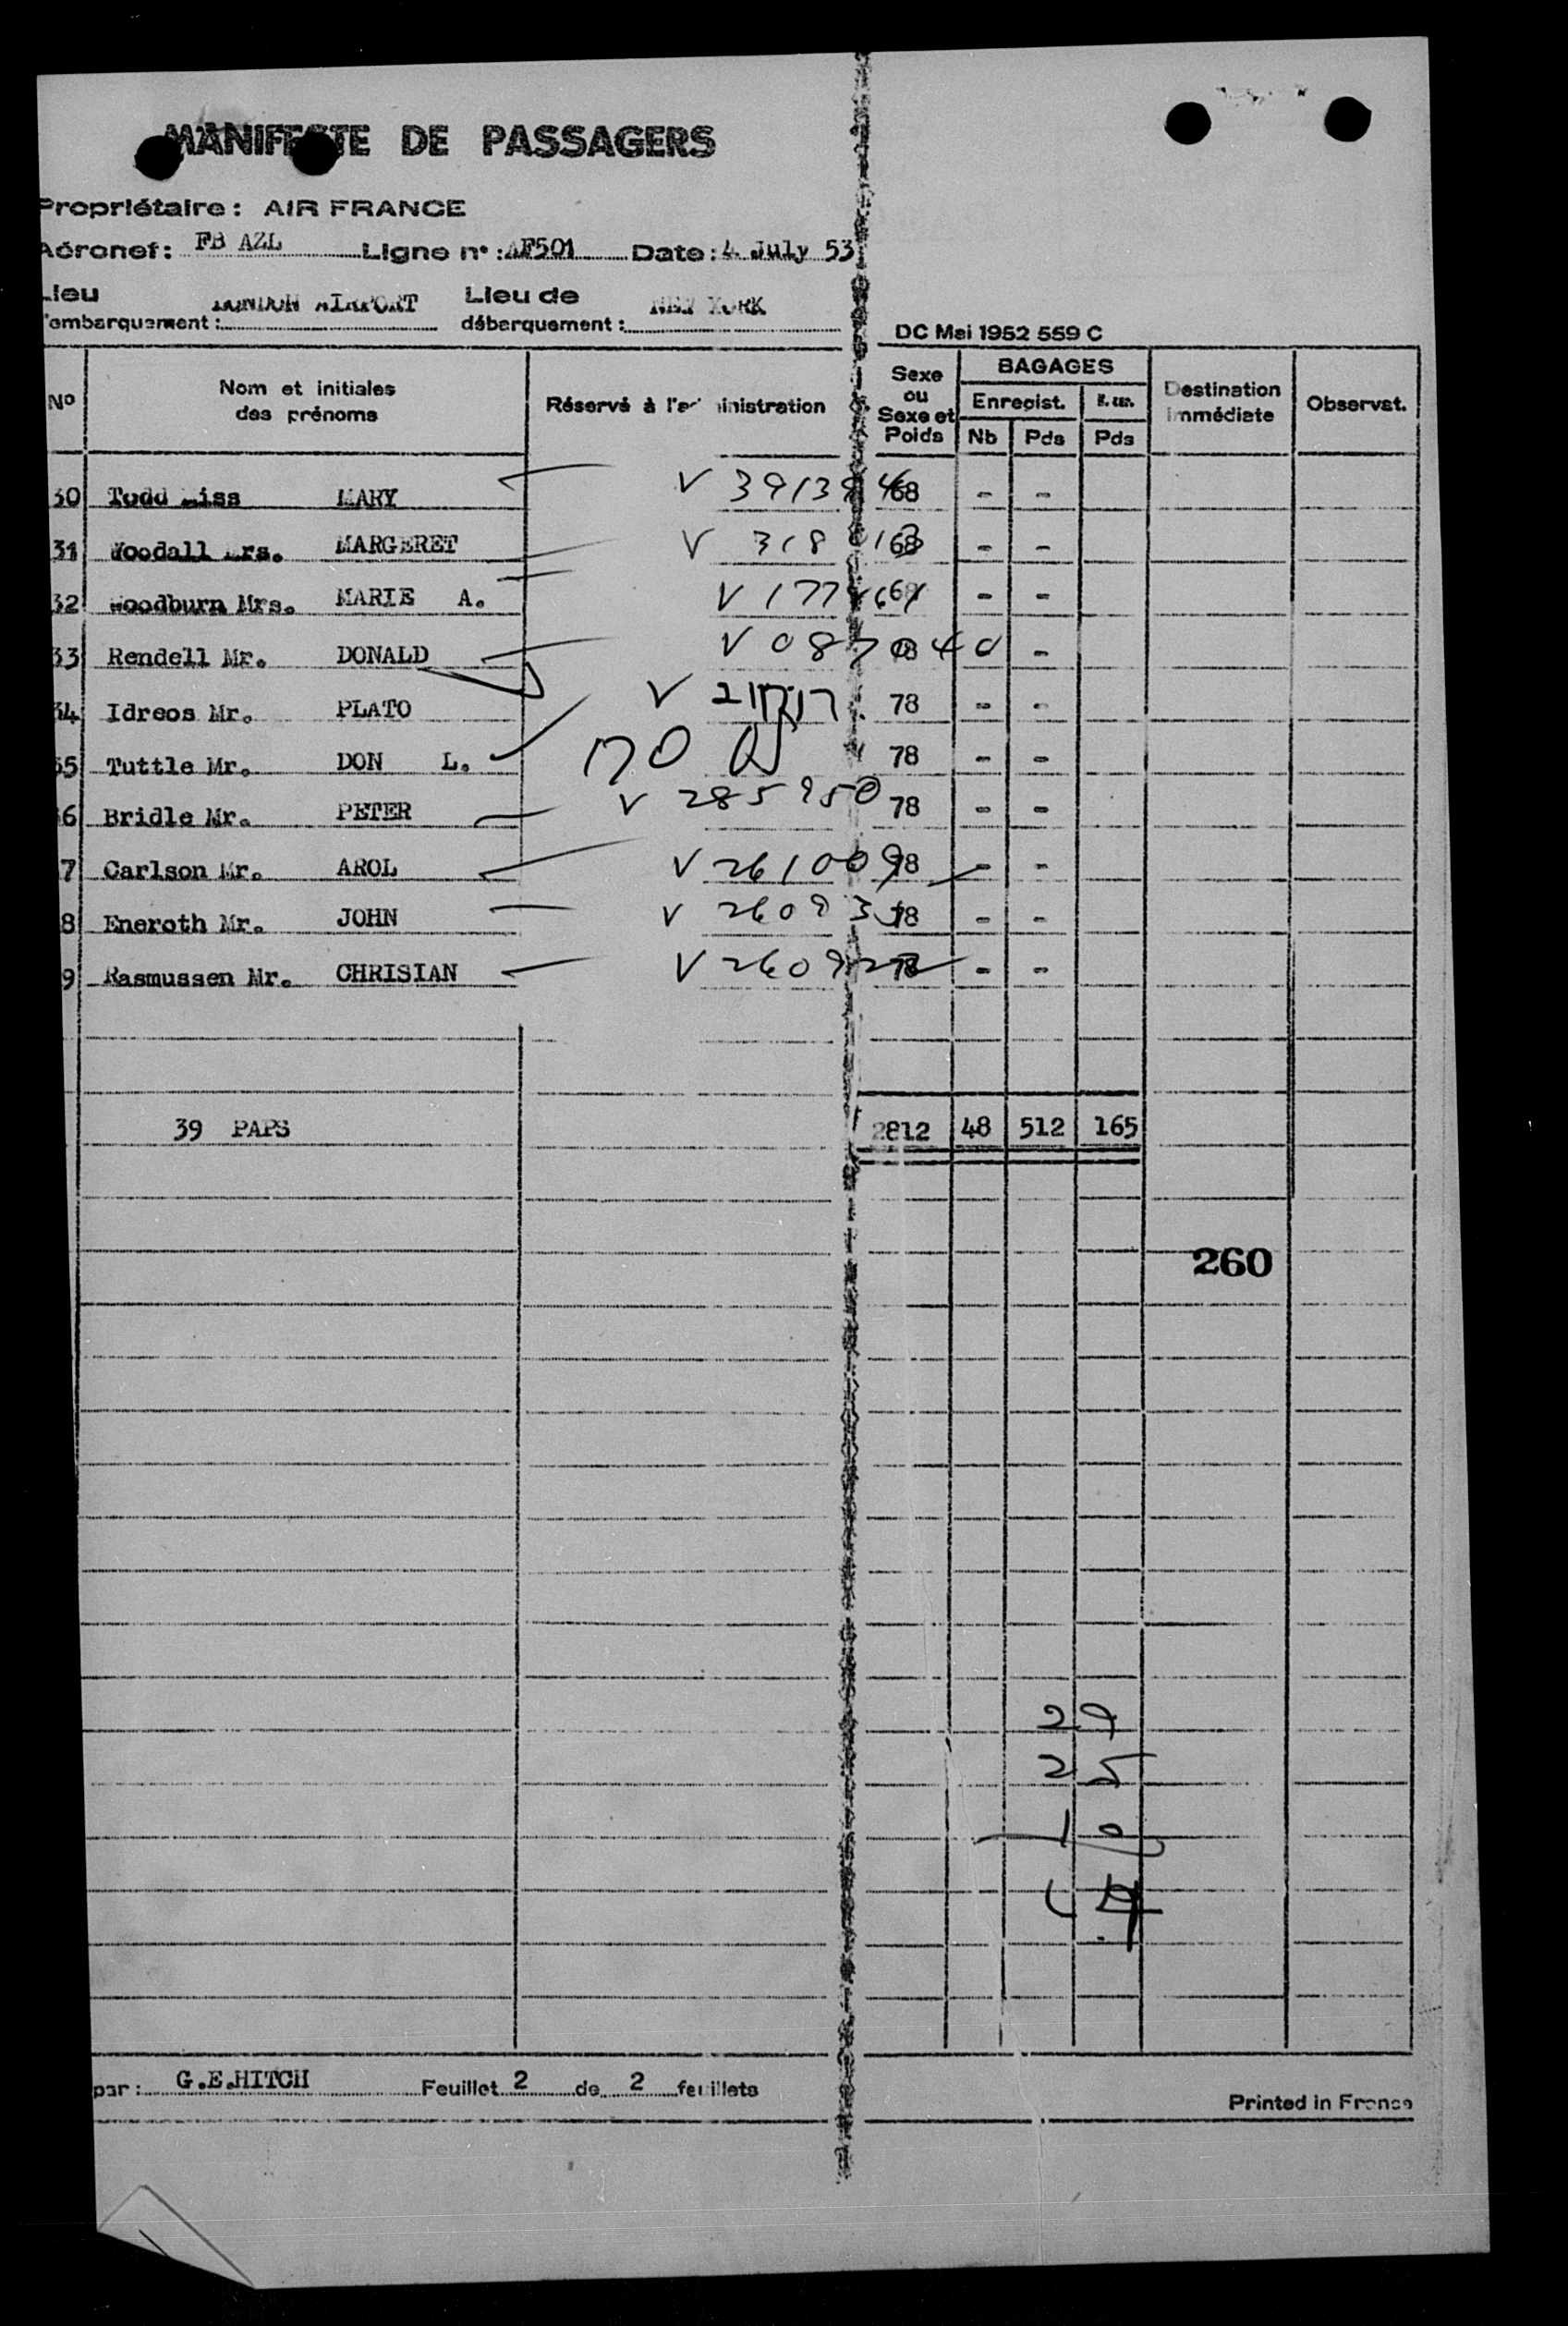 MANIFESTE DE PASSAGERS
Propriétaire: AIR FRANCE
Aéronef: FB AZL Ligne n°: AF501 Date: 4 July 53
Lieu Lieu de
d'embarquement: LONDON AIRPORT débarquement: NEW YORK
DC Mai 1952 559 C
N° Nom et initiales des prénoms Réservé à l'administration Sexe ou Sexe et Poids BAGAGES Enregist. Nb Pds Pds Destination immédiate Observat.
30 Todd Miss MARY V 68 - -
31 Woodall Mrs. MARGERET V 68 - -
32 Woodburn Mrs. MARIE A. V 68 - -
33 Rendell Mr. DONALD V 78 -
34 Idreos Mr. PLATO V 78 - -
35 Tuttle Mr. DON L. 78 - -
6 Bridle Mr. PETER V 285950 78 - -
7 Carlson Mr. AROL V 261009 78 - -
8 Eneroth Mr. JOHN V 78 - -
9 Rasmussen Mr. CHRISIAN V 78 - -
39 PAPS 2812 48 512 165
260
29
25
10
par: G.E.HITCH Feuillet 2 de 2 feuillets
Printed in France